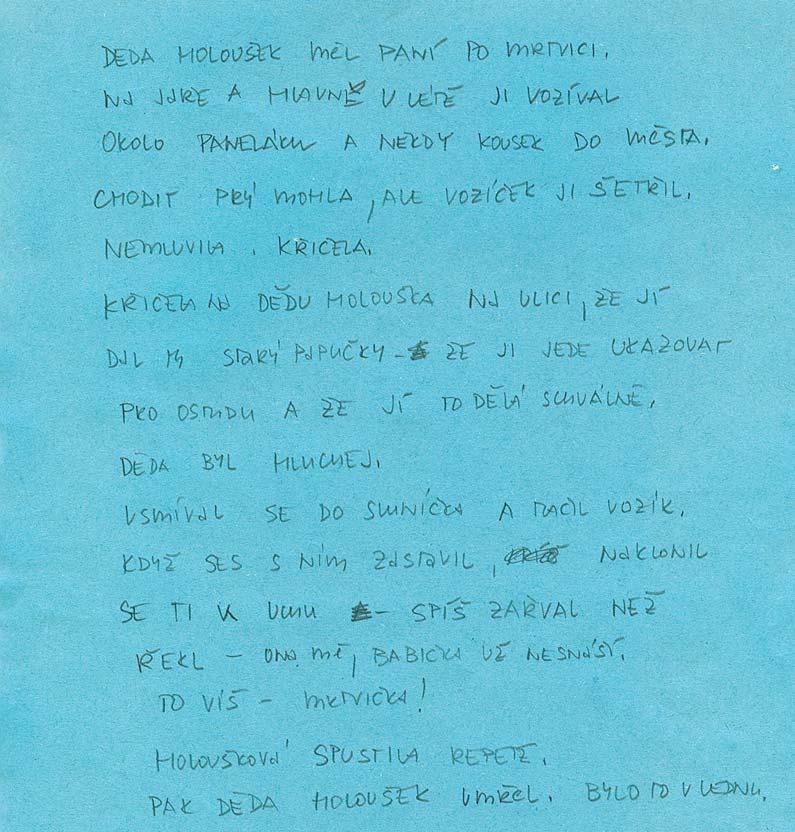 DĚDA HOLOUŠEK MĚL PANÍ PO MRTVICI.
NA JAŘE A HLAVNĚ V LÉTĚ JI VOZÍVAL
OKOLO PANELÁKU A NĚKDY KOUSEK DO MĚSTA.
CHODIT PRÝ MOHLA, ALE VOZÍČEK JI ŠETŘIL.
NEMLUVILA. KŘIČELA.
KŘIČELA NA DĚDU HOLOUŠKA NA ULICI, ŽE JÍ
DAL TY STARÝ PAPUČKY - ŽE JI JEDE UKAZOVAT
PRO OSTUDU A ŽE JÍ TO DĚLÁ SCHVÁLNĚ.
DĚDA BYL HLUCHEJ.
USMÍVAL SE DO SLUNÍČKA A TLAČIL VOZÍK.
KDYŽ SES S NÍM ZASTAVIL, NAKLONIL
SE TI K UCHU - SPÍŠ ZAŘVAL NEŽ
ŘEKL - ONA MĚ, BABIČKA UŽ NESNÁŠÍ.
TO VÍŠ - MRTVIČKA!
HOLOUŠKOVÁ SPUSTILA REPETE.
PAK DĚDA HOLOUŠEK UMŘEL. BYLO TO V LEDNU.